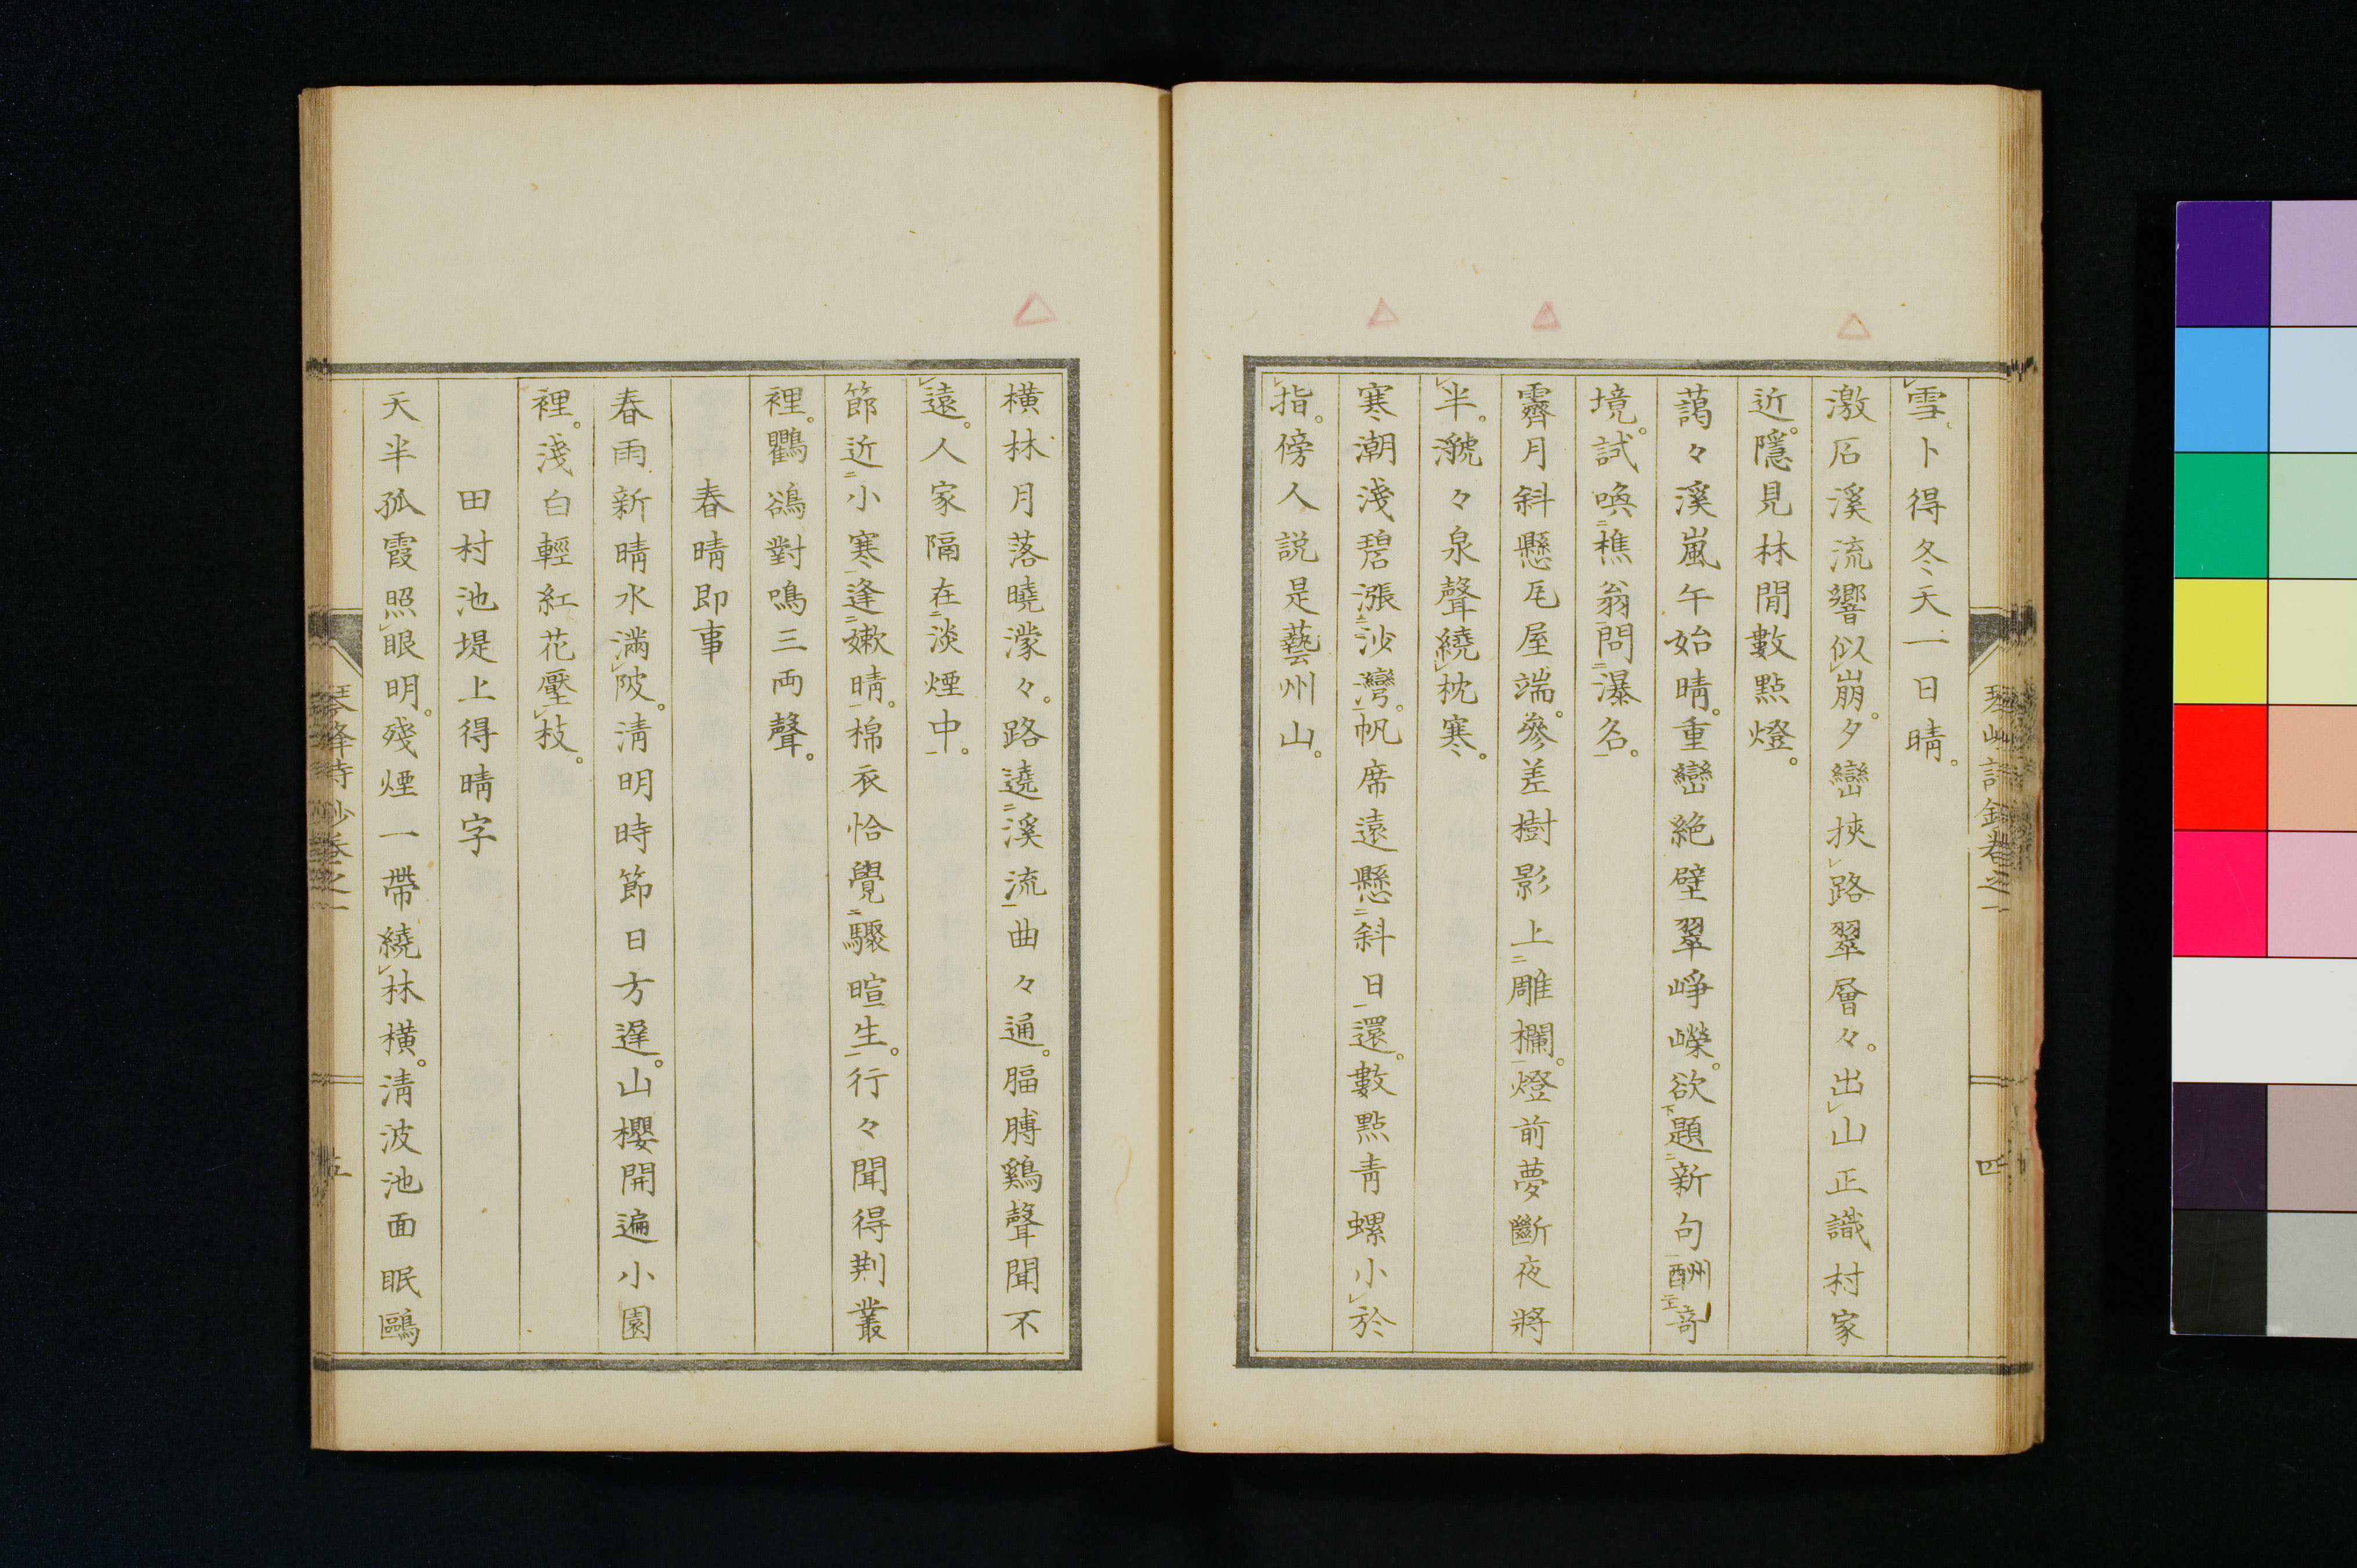 雪卜得冬天一日晴。
激石溪流響似崩。夕巒挾路翠層々。出山正識村家
近。隱見林間數點燈。
藹々溪嵐午始晴。重巒絶壁翠崢嶸。欲題新句酬奇
境。試喚樵翁問瀑名。
霽月斜懸瓦屋端。參差樹影上雕欄。燈前夢斷夜將
半。㶁々泉聲繞枕寒。
寒潮淺碧漲沙灣。帆席遠懸斜日還。數點青螺小於
指。傍人説是藝州山。
四
橫林月落曉濛々。路遶溪流曲々通。腷膊鷄聲聞不
遠。人家隔在淡煙中。
節近小寒逢嫩晴。棉衣恰覺驟暄生。行々聞得荆叢
裡。鸜鵒對鳴三両聲。
春晴即事
春雨新晴水滿陂。清明時節日方遲。山櫻開遍小園
裡。淺白輕紅花壓枝。
田村池堤上得晴字
天半孤霞照眼明。殘煙一帶繞林橫。清波池面眠鷗
琴峰詩鈔卷之一
五